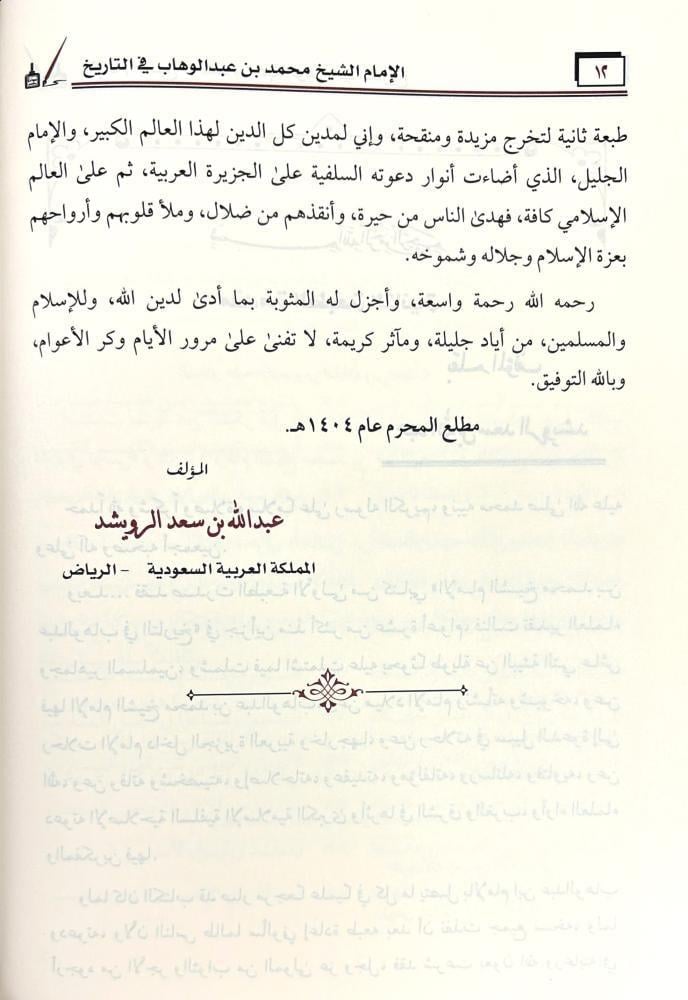 ١٢
الإمام الشيخ محمد بن عبدالوهاب في التاريخ
طبعة ثانية لتخرج مزيدة ومنقحة، وإني لمدين كل الدين لهذا العالم الكبير، والإمام
الجليل، الذي أضاءت أنوار دعوته السلفية على الجزيرة العربية، ثم على العالم
الإسلامي كافة، فهدى الناس من حيرة، وأنقذهم من ضلال، وملأ قلوبهم وأرواحهم
بعزة الإسلام وجلاله وشموخه.
رحمه الله رحمة واسعة، وأجزل له المثوبة بما أدى لدين الله، وللإسلام
والمسلمين، من أياد جليلة، ومآثر كريمة، لا تفنى على مرور الأيام وكر الأعوام،
وبالله التوفيق.
مطلع المحرم عام ١٤٠٤هـ.
المؤلف
عبدالله بن سعد الرويشد
المملكة العربية السعودية - الرياض